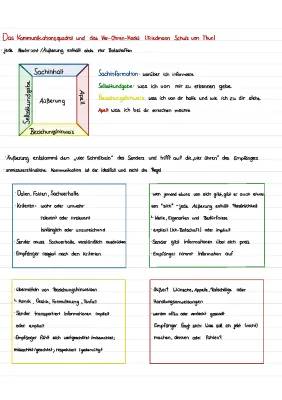 Das Kommunikationsquadrat und das Vier-Ohren-Modell (Friedemann Schulz von Thun)
jede Nachricht/Äußerung enthält stets vier Botschaften
Sachinhalt
Selbstkundgabe
Äußerung
Appell
Beziehungshinweis
Sachinformation: worüber ich informiere
Selbstkundgabe: was ich von mir zu erkennen gebe
Beziehungshinweis: was ich von dir halte und wie ich zu dir stehe
Appell: was ich bei dir erreichen möchte
Äußerung entstammt den „vier Schnäbeln" des Senders und trifft auf die „vier Ohren" des Empfängers
Kommunikation ist der Idealfall und nicht die Regel
Daten, Fakten, Sachverhalte
Kriterien: wahr oder unwahr
relevant oder irrelevant
hinlänglich oder unzureichend
Sender muss Sachverhalte verständlich ausdrücken
Empfänger reagiert nach den Kriterien
wenn jemand etwas von sich gibt, gibt er auch etwas
von "sich" - jede Äußerung enthält Persönlichkeit
Werte, Eigenarten und Bedürfnisse
explizit (Ich-Botschaft) oder implizit
Sender gibt Informationen über sich preis
Empfänger nimmt Information auf
übermitteln von Beziehungshinweisen
Mimik, Gestik, Formulierung, Tonfall
Sender transportiert Informationen implizit
oder explizit
Empfänger fühlt sich wertgeschätzt/missachtet,
respektiert/gedemütigt
Wünsche, Appelle, Ratschläge oder
Handlungsanweisungen
werden offen oder verdeckt gesandt
Empfänger fragt sich: Was soll ich jetzt (nicht)
machen, denken oder fühlen?